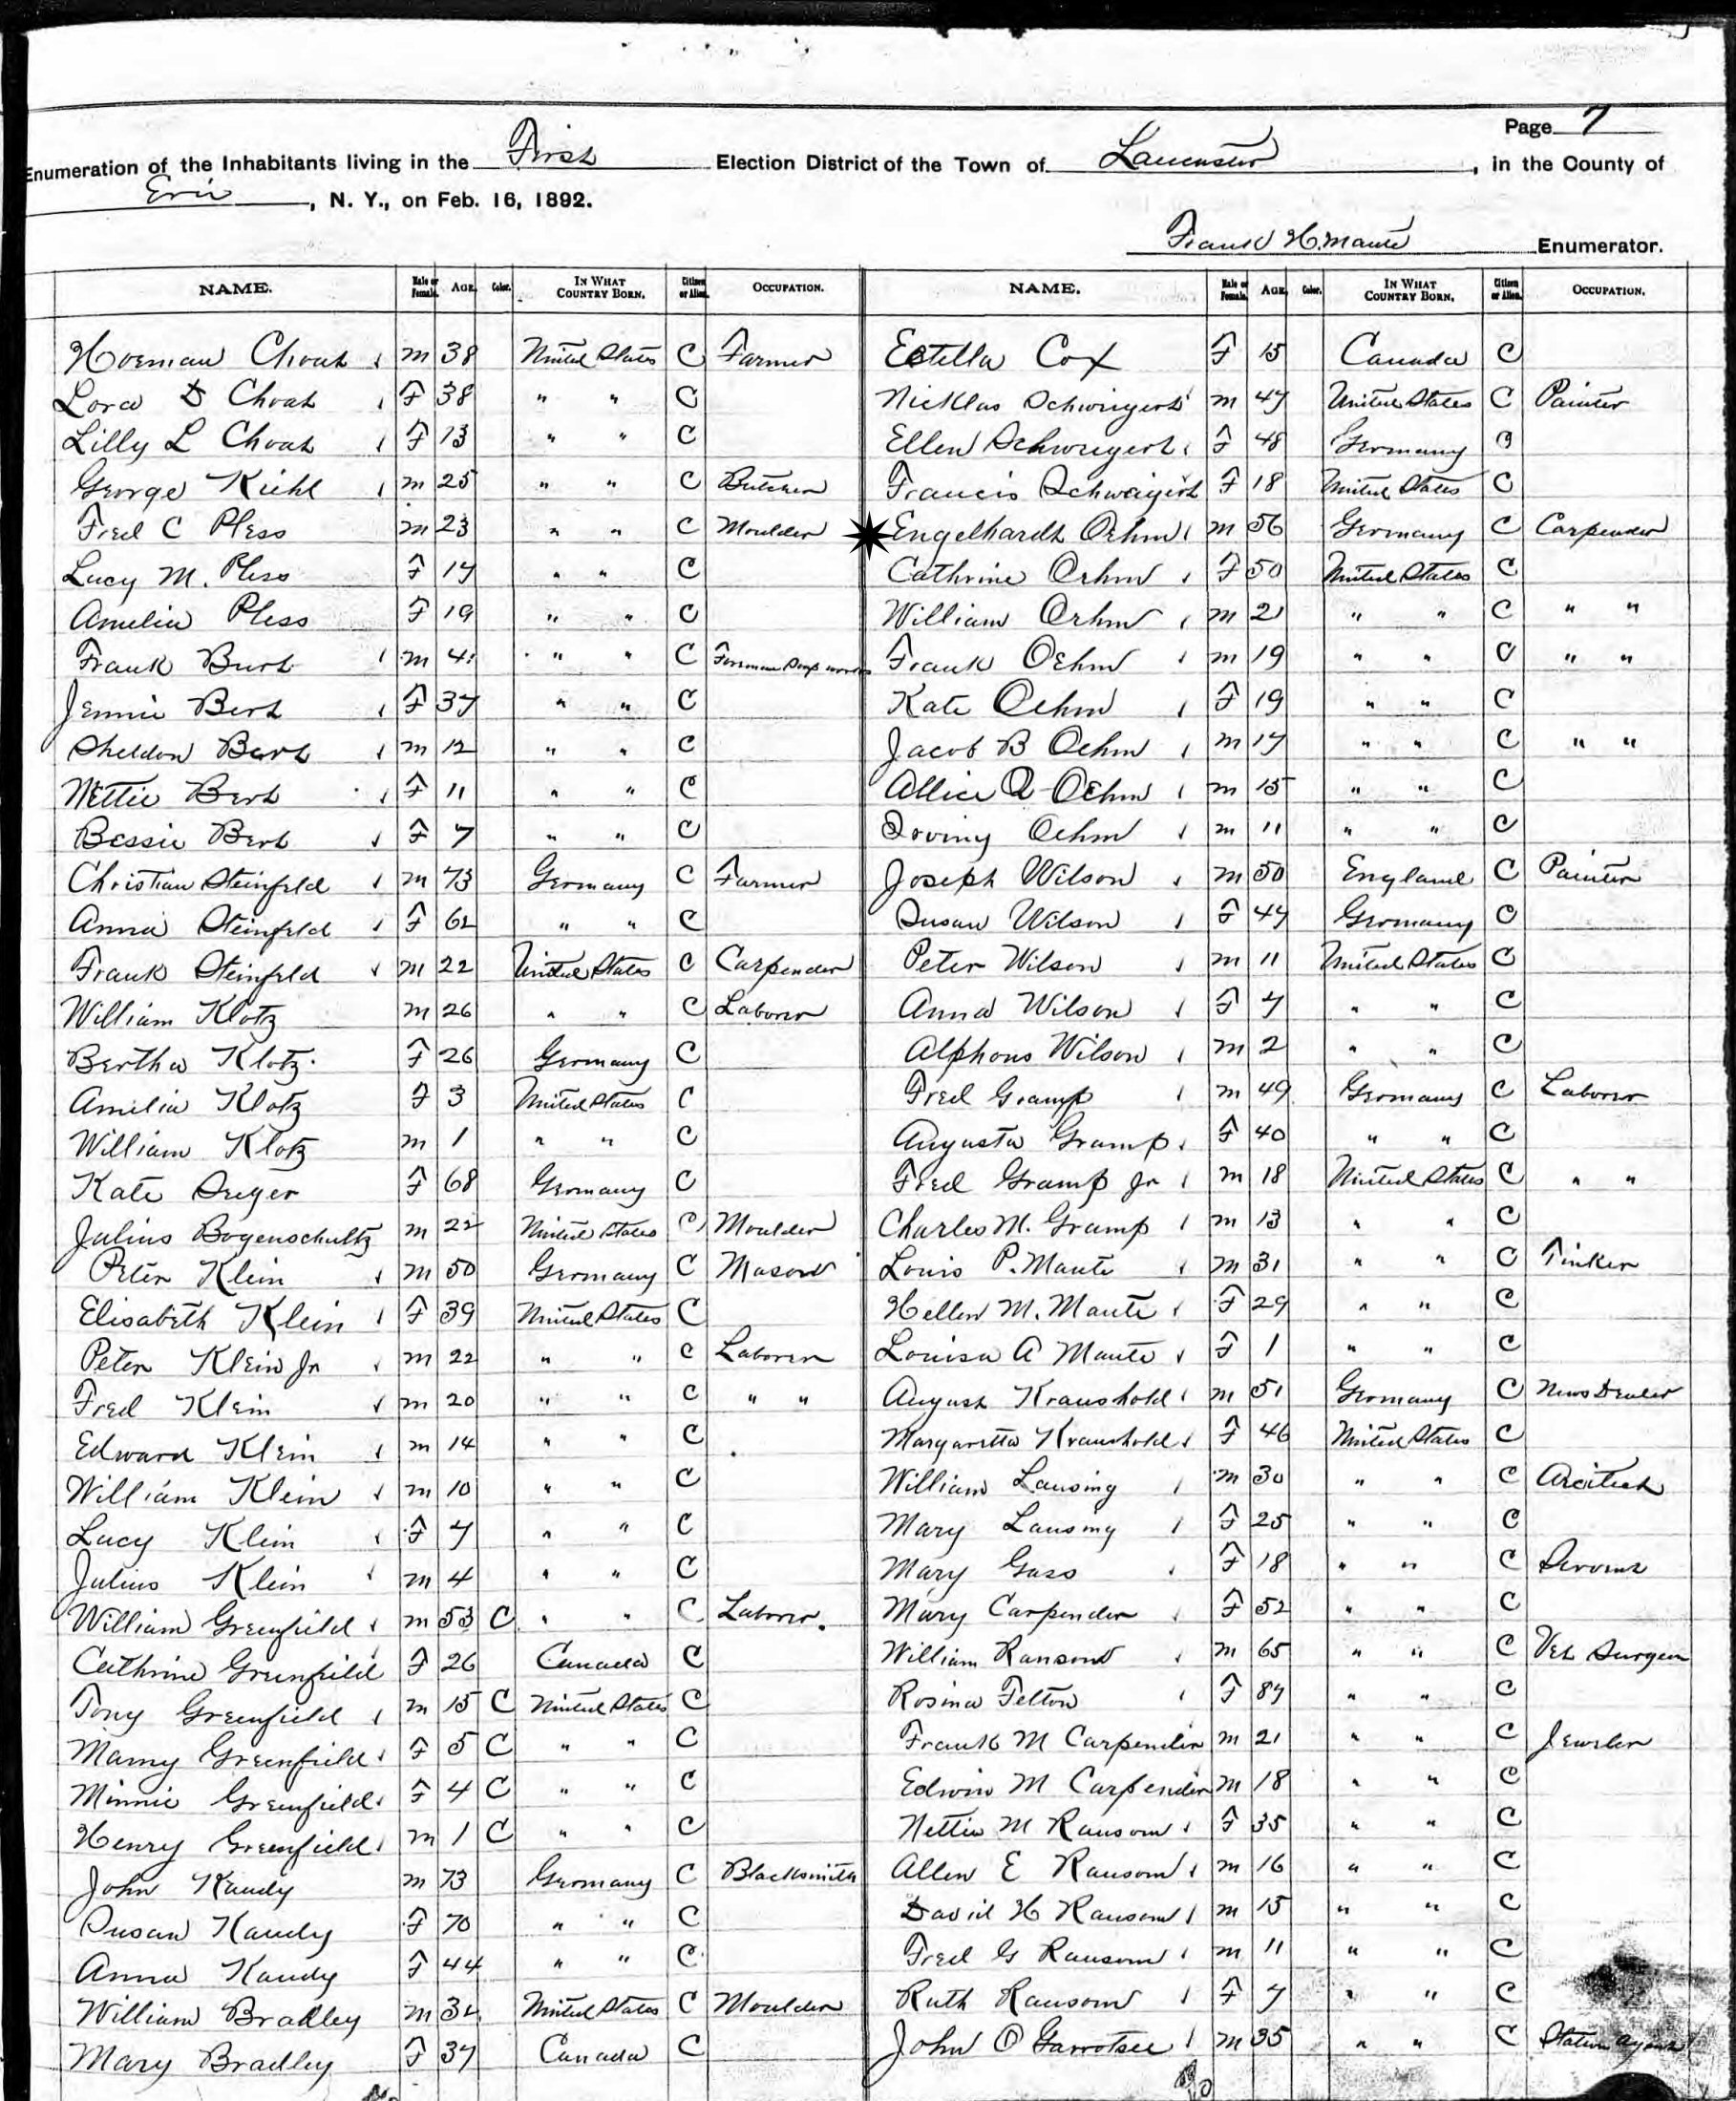 Page 7
Enumeration of the Inhabitants living in the First Election District of the Town of Lancaster, in the County of
Erie, N. Y., on Feb. 16, 1892.
Frank H. Maute Enumerator.
NAME. Male or Female. AGE. Color. IN WHAT COUNTRY BORN. Citizen or Alien. OCCUPATION. NAME. Male or Female. AGE. Color. IN WHAT COUNTRY BORN. Citizen or Alien. OCCUPATION.
Norman Choat m 38 United States C Farmer
Lora D Choat F 38 " " C
Lilly L Choat F 13 " " C
George Kiehl m 25 " " C Butcher
Fred C Pless m 23 " " C Moulder
Lucy M. Pless F 17 " " C
Amelia Pless F 19 " " C
Frank Burt m " " C Foreman works
Jennie Bert F 37 " " C
Sheldon Bert m 12 " " C
Nettie Bert F 11 " " C
Bessie Bert F 7 " " C
Christian Steinfeld m 73 Germany C Farmer
Anna Steinfeld F 62 " " C
Frank Steinfeld m 22 United States C Carpender
William Klotz m 26 " " C Laborer
Bertha Klotz F 26 Germany C
Amelia Klotz F 3 United States C
William Klotz m 1 " " C
Kate Seeger F 68 Germany C
Julius Bogenschultz m 22 United States C Moulder
Peter Klein m 50 Germany C Mason
Elisabeth Klein F 39 United States C
Peter Klein Jr m 22 " " C Laborer
Fred Klein m 20 " " C " "
Edward Klein m 14 " " C
William Klein m 10 " " C
Lucy Klein F 7 " " C
Julius Klein m 4 " " C
William Greenfield m 53 C " " C Laborer.
Cathrine Greenfield F 26 Canada C
Tony Greenfield m 15 C United States C
Mamy Greenfield F 5 C " " C
Minnie Greenfield F 4 C " " C
Henry Greenfield m 1 C " " C
John Kandy m 73 Germany C Blacksmith
Susan Kandy F 70 " " C
Anna Kandy F 44 " " C
William Bradley m 32 United States C Moulder
Mary Bradley F 37 Canada C
Estella Cox F 15 Canada C
Nicklas Schweigert m 47 United States C Painter
Ellen Schweigert F 48 Germany C
Francis Schwaigert F 18 United States C
Engelhardt Oehm m 56 Germany C Carpender
Cathrine Oehm F 50 United States C
William Oehm m 21 " " C " "
Frank Oehm m 19 " " C " "
Kate Oehm F 19 " " C
Jacob B Oehm m 17 " " C " "
Allice Q Oehm m 15 " " C
Irving Oehm m 11 " " C
Joseph Wilson m 50 England C Painter
Susan Wilson F 47 Germany C
Peter Wilson m 11 United States C
Anna Wilson F 7 " " C
Alphons Wilson m 2 " " C
Fred Gramp m 49 Germany C Laborer
Augusta Gramp F 40 " " C
Fred Gramp Jr m 18 United States C " "
Charles M. Gramp m 13 " " C
Louis P. Maute m 31 " " C Tinker
Hellen M. Maute F 29 " " C
Louisa A Maute F 1 " " C
August Kraushold m 51 Germany C News Dealer
Margaretta Kraushold F 46 United States C
William Lansing m 30 " " C Arcitect
Mary Lansing F 25 " " C
Mary Gass F 18 " " C Servent
Mary Carpender F 52 " " C
William Ransom m 65 " " C Vet Surgen
Rosina Felton F 87 " " C
Frank M Carpender m 21 " " C Jeweler
Edwin M Carpender m 18 " " C
Nettie M Ransom F 35 " " C
Allen E Ransom m 16 " " C
David H Ransom m 15 " " C
Fred G Ransom m 11 " " C
Ruth Ransom F 7 " " C
John O Garrotsee m 35 " " C Station agent